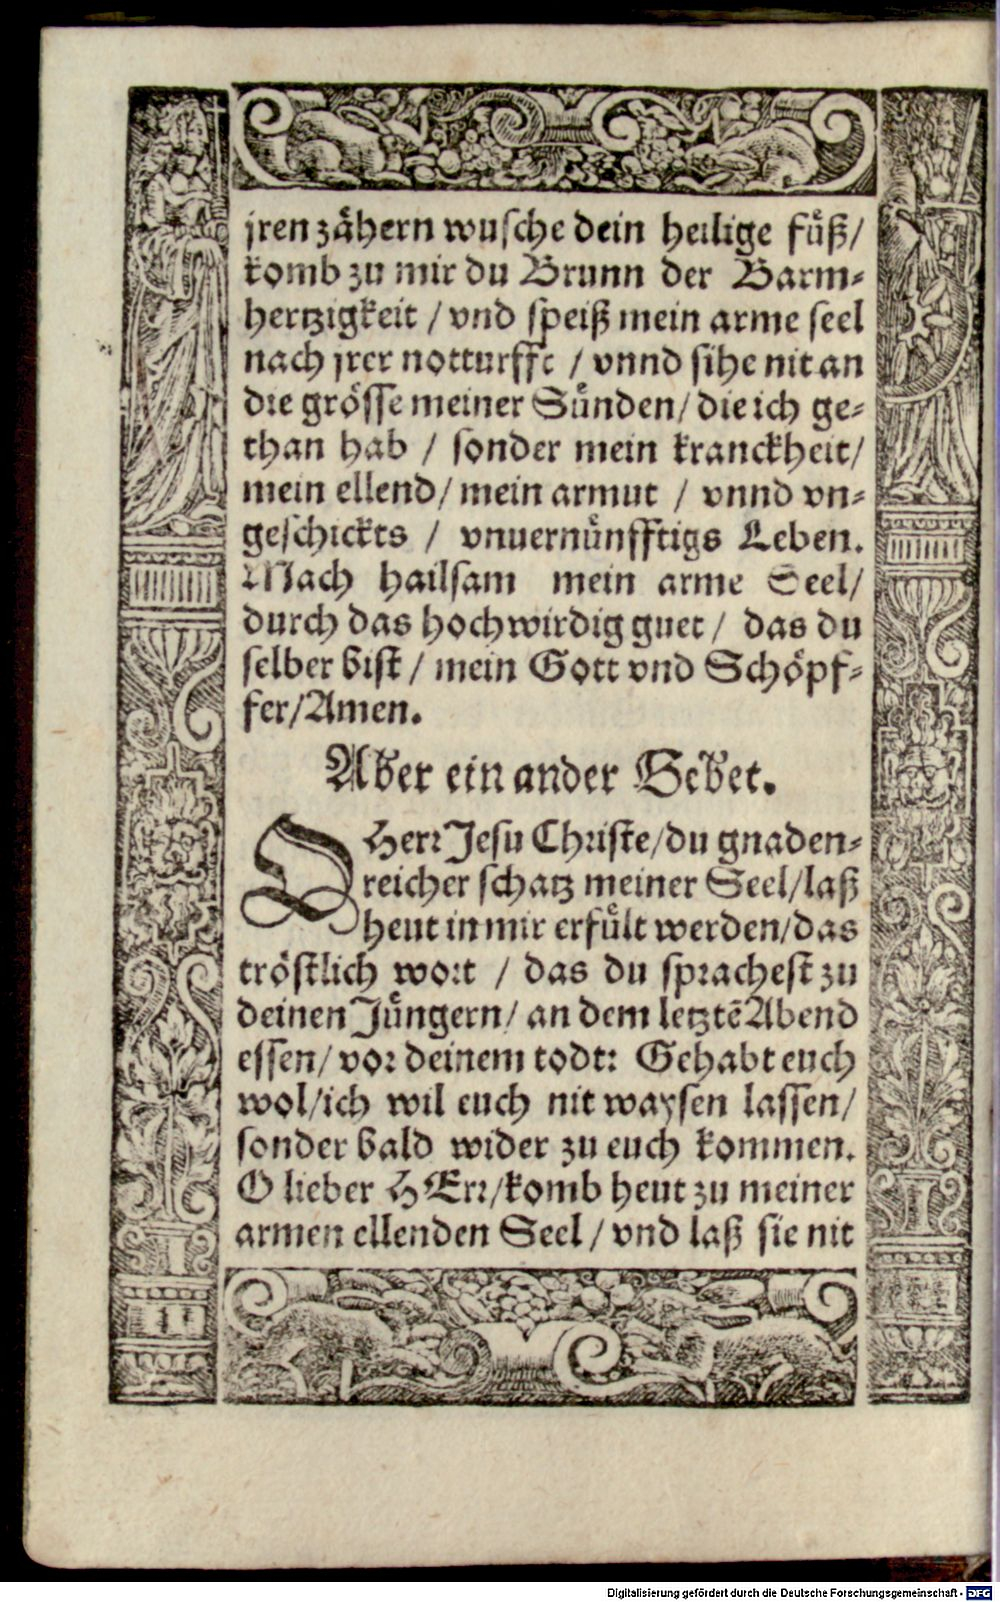 jren zähern wusche dein heilige füß/
komb zu mir du Brunn der Barm-
hertzigkeit / vnd speiß mein arme seel
nach jrer notturfft / vnnd sihe nit an
die grösse meiner Sünden/ die ich ge-
than hab / sonder mein kranckheit/
mein ellend/ mein armut / vnnd vn-
geschickts / vnuernünfftigs Leben.
Mach hailsam mein arme Seel/
durch das hochwirdig guet / das du
selber bist / mein Gott vnd Schöpf-
fer/Amen.
Aber ein ander Gebet.
O Herr Jesu Christe/du gnaden-
reicher schatz meiner Seel/laß
heut in mir erfült werden/das
tröstlich wort / das du sprachest zu
deinen Jüngern/ an dem letztē Abend
essen/ vor deinem todt: Gehabt euch
wol/ich wil euch nit waysen lassen/
sonder bald wider zu euch kommen.
O lieber HErr/komb heut zu meiner
armen ellenden Seel / vnd laß sie nit
Digitalisierung gefördert durch die Deutsche Forschungsgemeinschaft - DFG